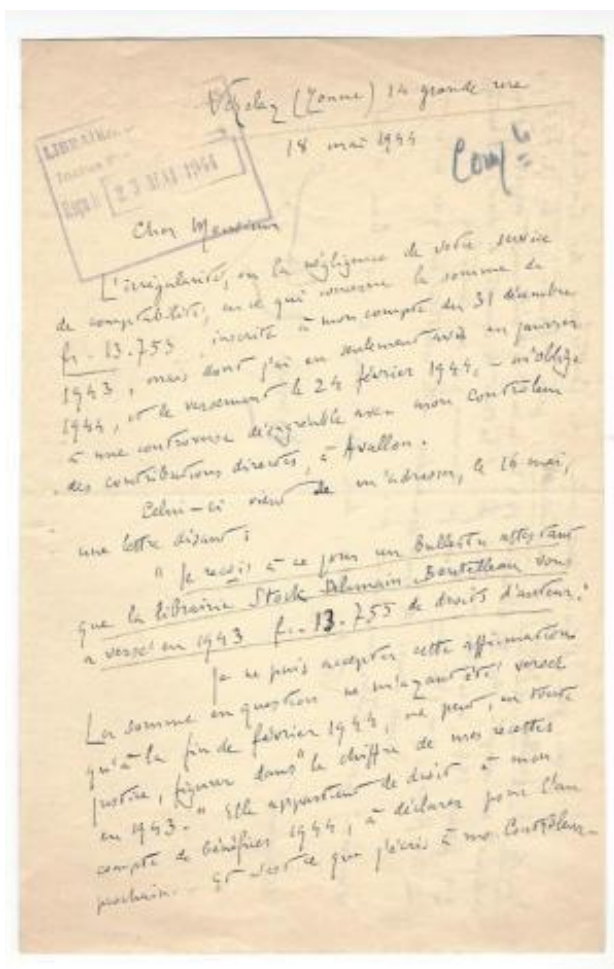 Vézelay (Yonne) 14 grande rue
18 mai 1944
LIBRAIRIE
Reçu le 23 MAI 1944
Cher Monsieur
L'irrégularité, ou la négligence de votre service
de comptabilité, en ce qui concerne la somme de
fr. 13.755, inscrite à mon compte du 31 décembre
1943, mais dont j'ai eu seulement avis en janvier
1944, et le versement le 24 février 1944, – m'oblige
à une controverse désagréable avec mon contrôleur
des contributions directes, à Avallon.
Celui-ci vient de m'adresser, le 16 mai,
une lettre disant :
" Je reçois à ce jour un bulletin attestant
que la librairie Stock Delamain Boutelleau vous
a versé en 1943 fr. 13.755 de droits d'auteur."
Je ne puis accepter cette affirmation.
La somme en question ne m'ayant été versée
qu'à la fin de février 1944, ne peut, en toute
justice, figurer dans "le chiffre de mes recettes
en 1943." Elle appartient de droit à mon
compte de bénéfices 1944, à déclarer pour l'an
prochain. – Et c'est ce que j'écris à mon Contrôleur –